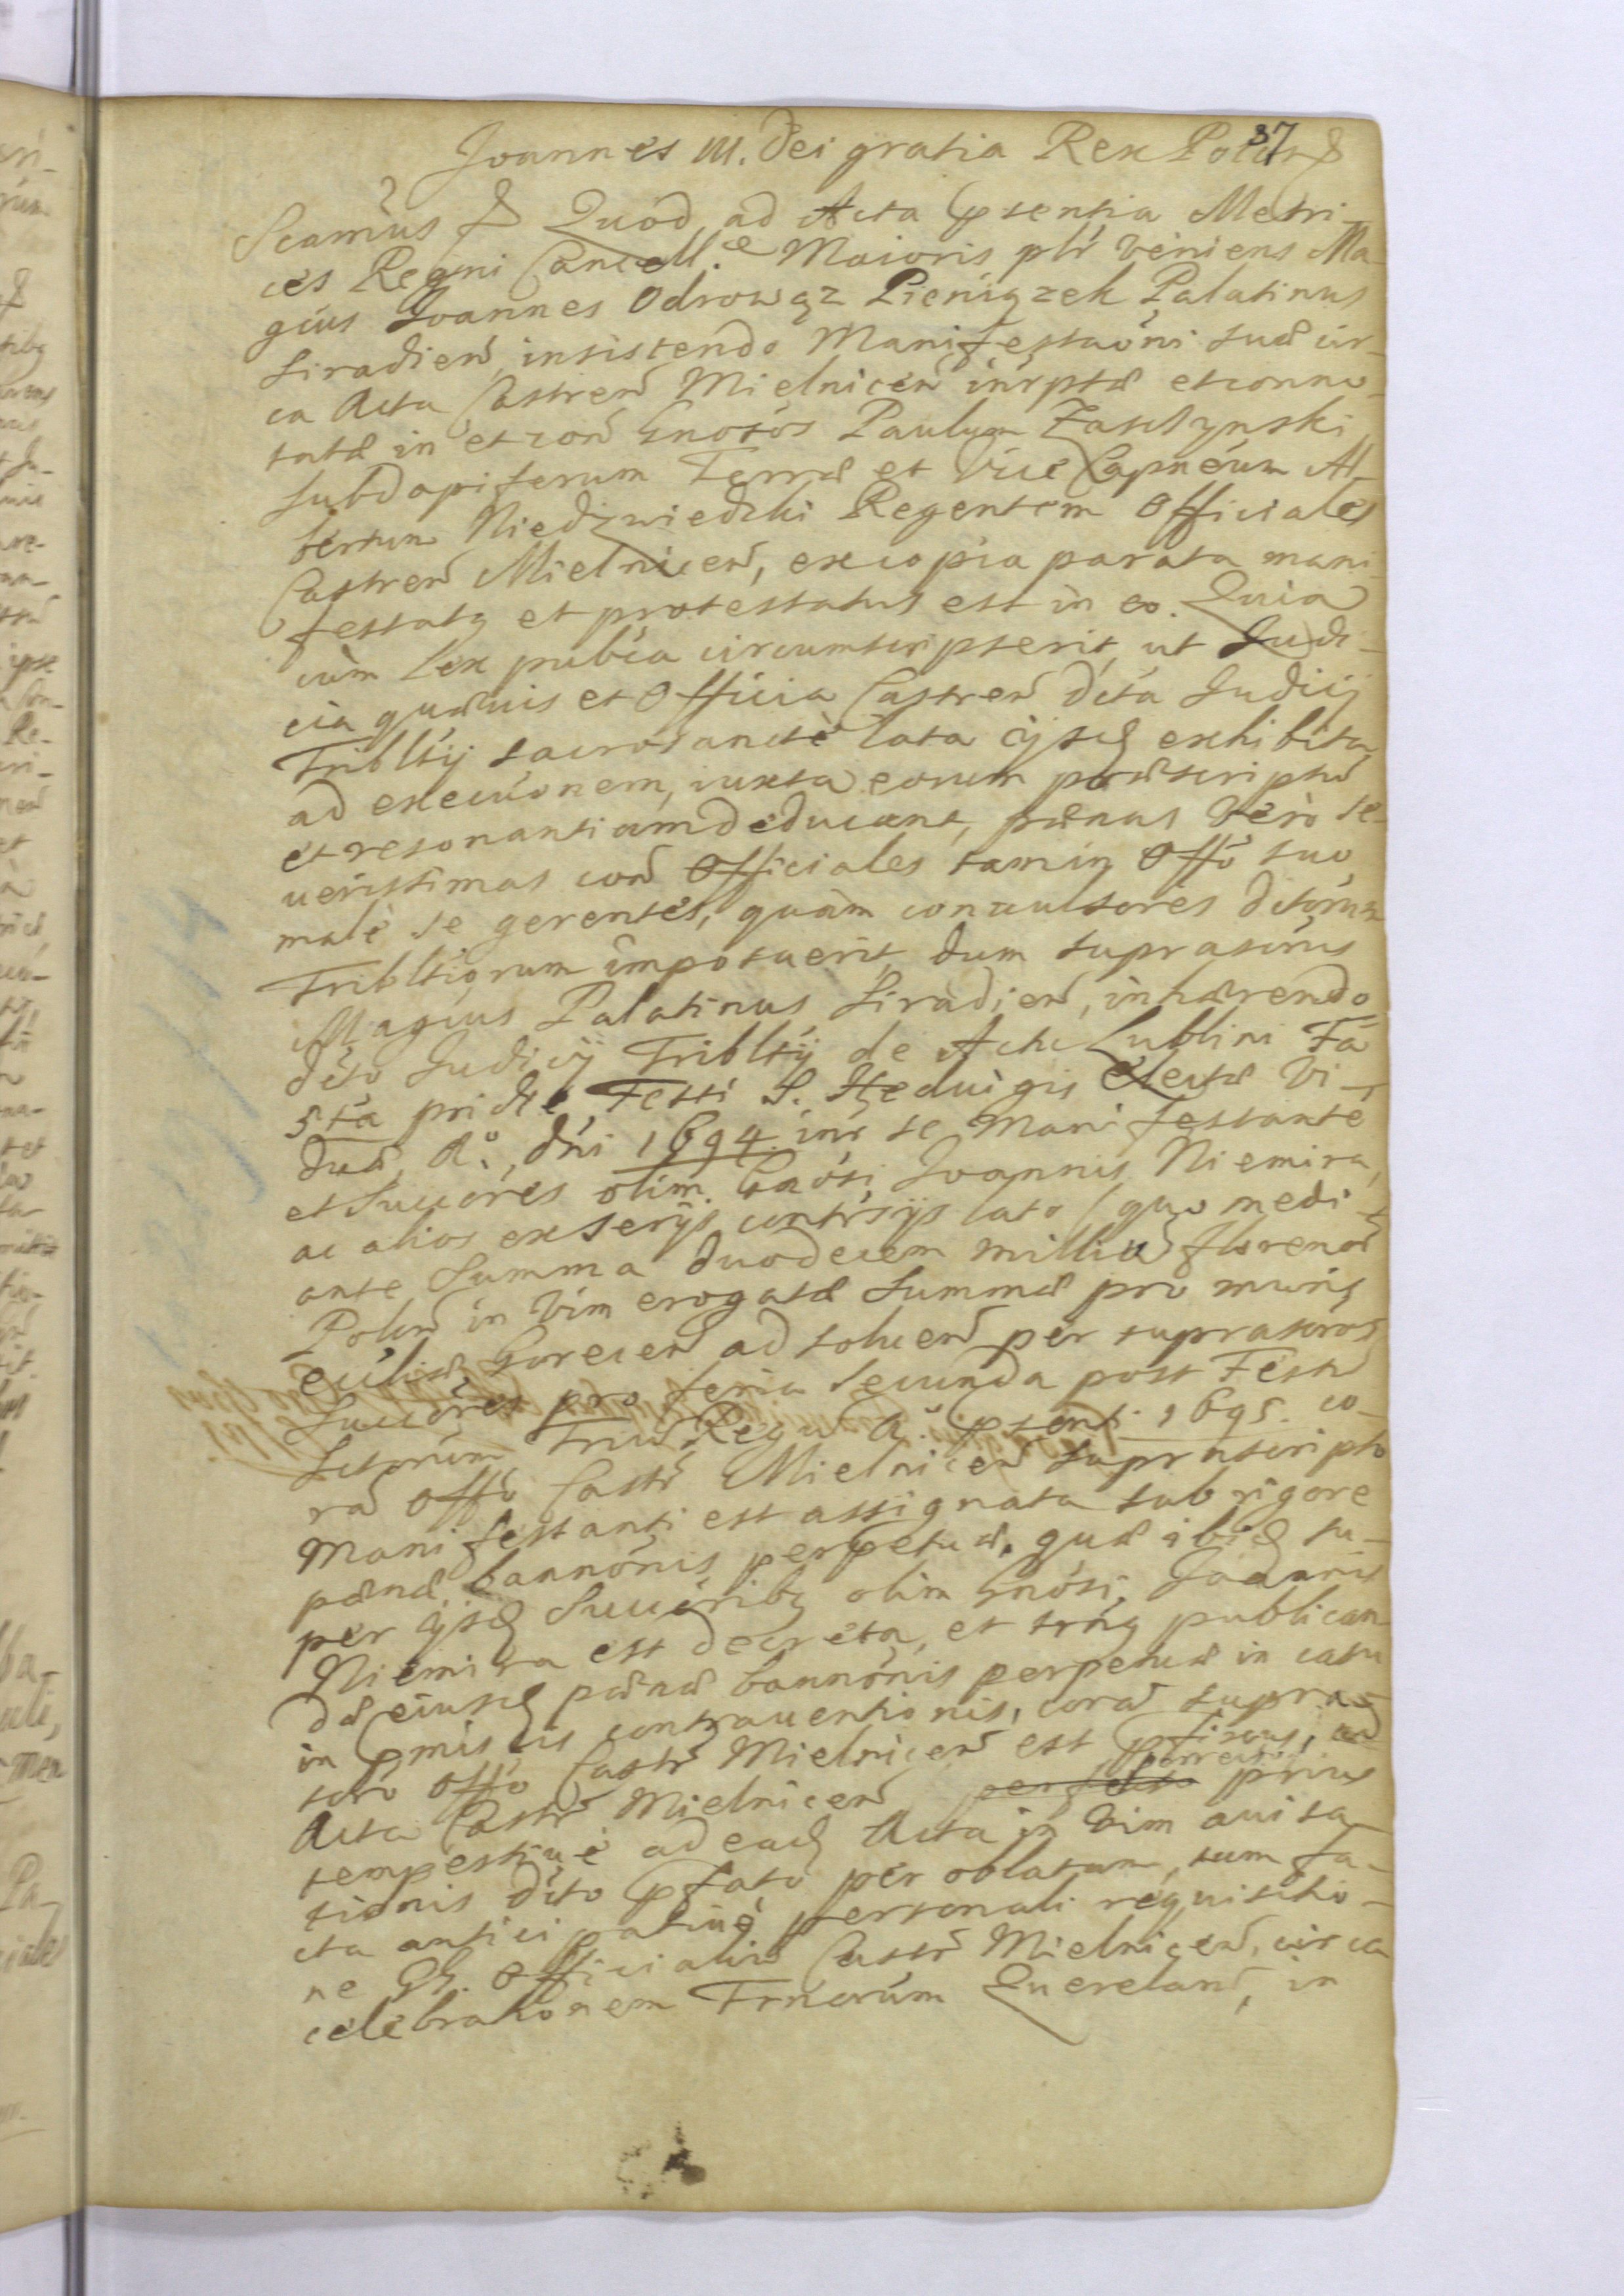 37
Joannes III. Dei gratia Rex Polon &
Scamus & Quod ad Acta pntia Metri-
ces Regni Cancell.æ Maioris plr Veniens Ma-
gcus Joannes Odrowąz Pieniązek Palatinus
Siradien, insistendo Manifestaõni suæ cir-
ca Acta Castren Mielnicen inrptæ et conno-
tatæ in et con Gnosos Paulum Zaschynski
Subdapiferum Terræ et Vice Capneum Al-
bertum Niedzwiedzki Regentem Officiales
Castren Mielnicen, ex copia parata mani-
festatq et protestatus est in eo. Quia
cùm Lex publca circumscripserit, ut Judi-
cia quævis et Officia Castren Dcta Judicij
Tribltij sacrosanctè lata ijsd exhibita
ad execuõnem, iuxta eorum præscriptu
et resonantiam deducant, pænas Verò se-
uerissimas con Officiales tam in Offo suo
malè se gerentes, quàm convulsores Dctorum
Tribltiorum imposuerit, dum suprascrius
Magcus Palatinus Siradien, inhærendo
dcto Judicij Tribltij de Actu Lublini Fa
5ta pridie Festi S. Heduigis Electæ Vi-
duæ, Aº. Dni 1694. inr se Manifestante
et Succores olim. Gnosi Joannis Niemira,
ac alios ex Serijs contrsijs lato (quo medi-
ante Summa duodecem milliũ florenorũ
Polon in Vim erogatæ Summæ pro muris
ecclisæ Gorecen ad soluen per suprascros
Succores pro feria Secunda post Festũ
Sctorum Triũ Regũ Aº. psenti 1695. co-
ra Offo Castr Mielnicen suprascripto
Manifestanti est assignata sub rigore
pænæ bannõnis perpetuæ. quæ ibid su-
per ijsd Succoribq olim Gnosi. Joannis
Niemira est decreta, et trng publican-
dæ eiusd pænæ bannõnis perpetuæ in casu
in pmissis contrauentionis, corã supra-
scro Offo Castr Mielnicen est pfixus, ad
Acta Castr Mielnicen porrecto prius
tempestiuè ad ead Acta in Vim auisa-
tionis Dcto pfato per oblatam, tum fa-
cta anticipatiuè personali requisitio-
ne GG. Officialiũ Castr Mielnicen, circa
celebrationem Trnorum Querelarũ, in